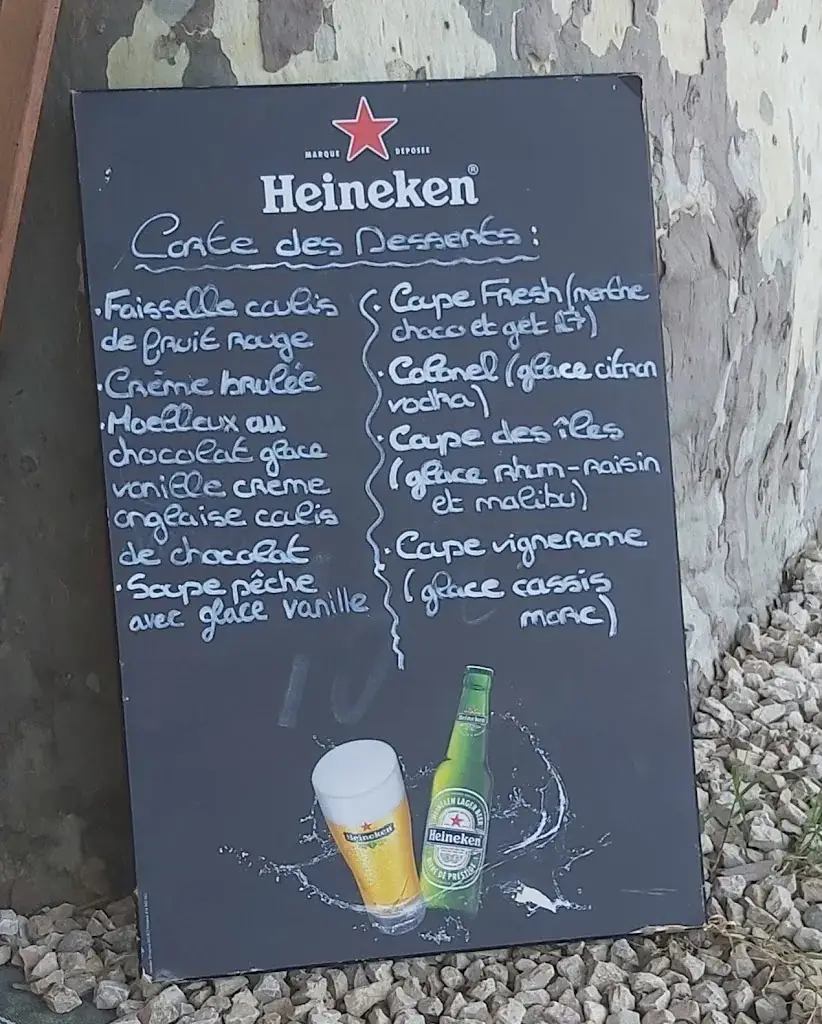 MARQUE DEPOSEE
Heineken®
Carte des Desserts :
·Faisselle coulis
de fruit rouge
·Crème brulée
·Moelleux au
chocolat glace
vanille crème
anglaise coulis
de chocolat
·Soupe pêche
avec glace vanille
·Coupe Fresh (menthe
choco et get 27)
·Colonel (glace citron
vodka)
·Coupe des îles
(glace rhum-raisin
et malibu)
·Coupe vigneronne
(glace cassis
marc)
Heineken
Heineken
HEINEKEN LAGER BEER
Heineken
BIÈRE DE PRESTIGE